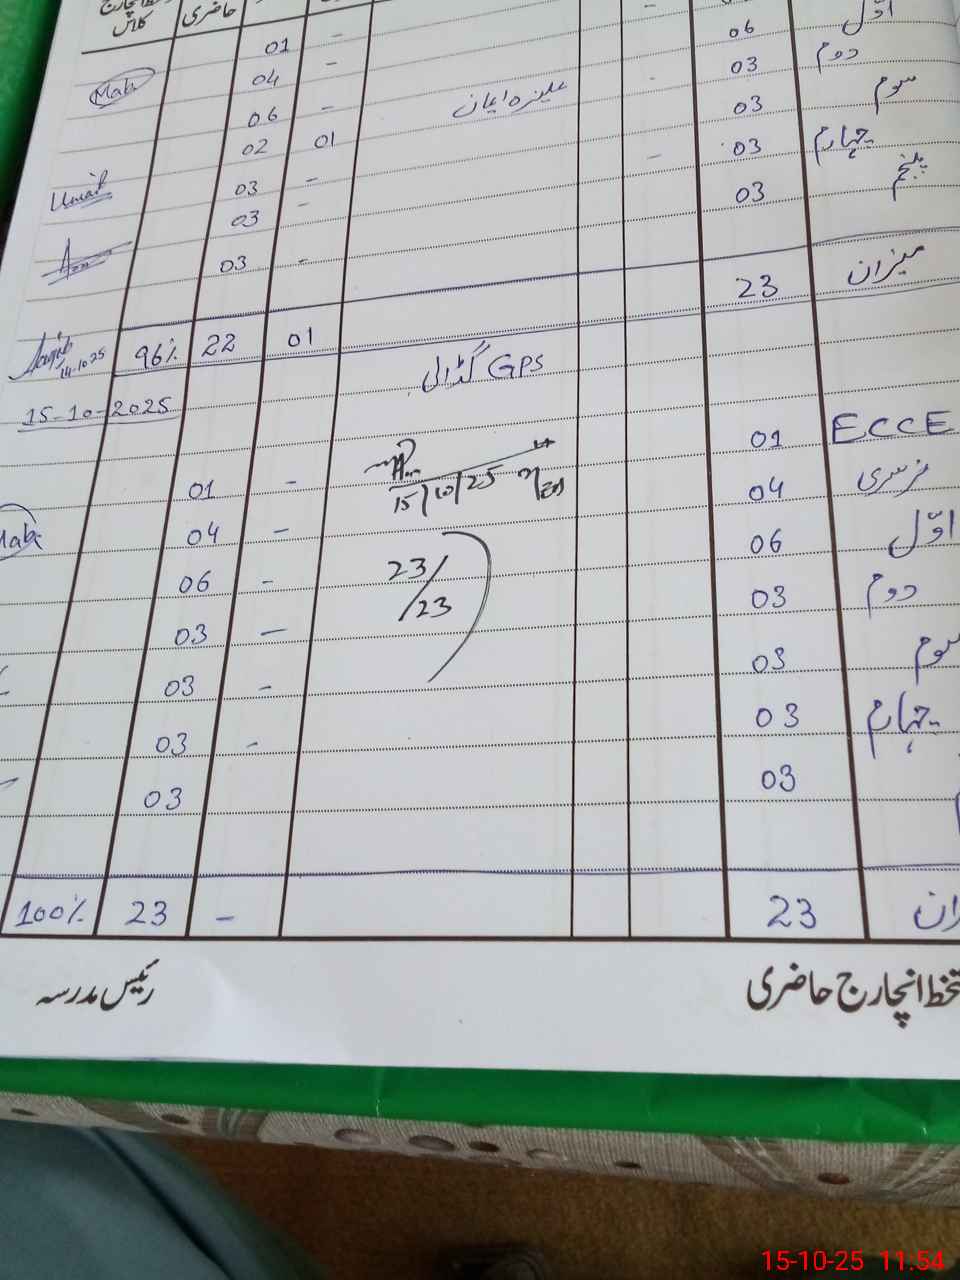 حاضری کلاس
01 - 06 اوّل
04 - 03 دوم
Mah 06 - علیزہ ایمان 03 سوم
02 01 - 03 چہارم
03 - 03 پنجم
03 -
03 -
96% 22 01 23 میزان
14-10-25
15-10-2025 GPS گڈالی
01 - 01 ECCE
15/10/25
04 - 04 نرسری
06 - 23/23 06 اوّل
03 - 03 دوم
03 - 03 سوم
03 - 03 چہارم
03 03
100% 23 - 23 ان
رئیس مدرسہ تخط انچارج حاضری
15-10-25 11:54